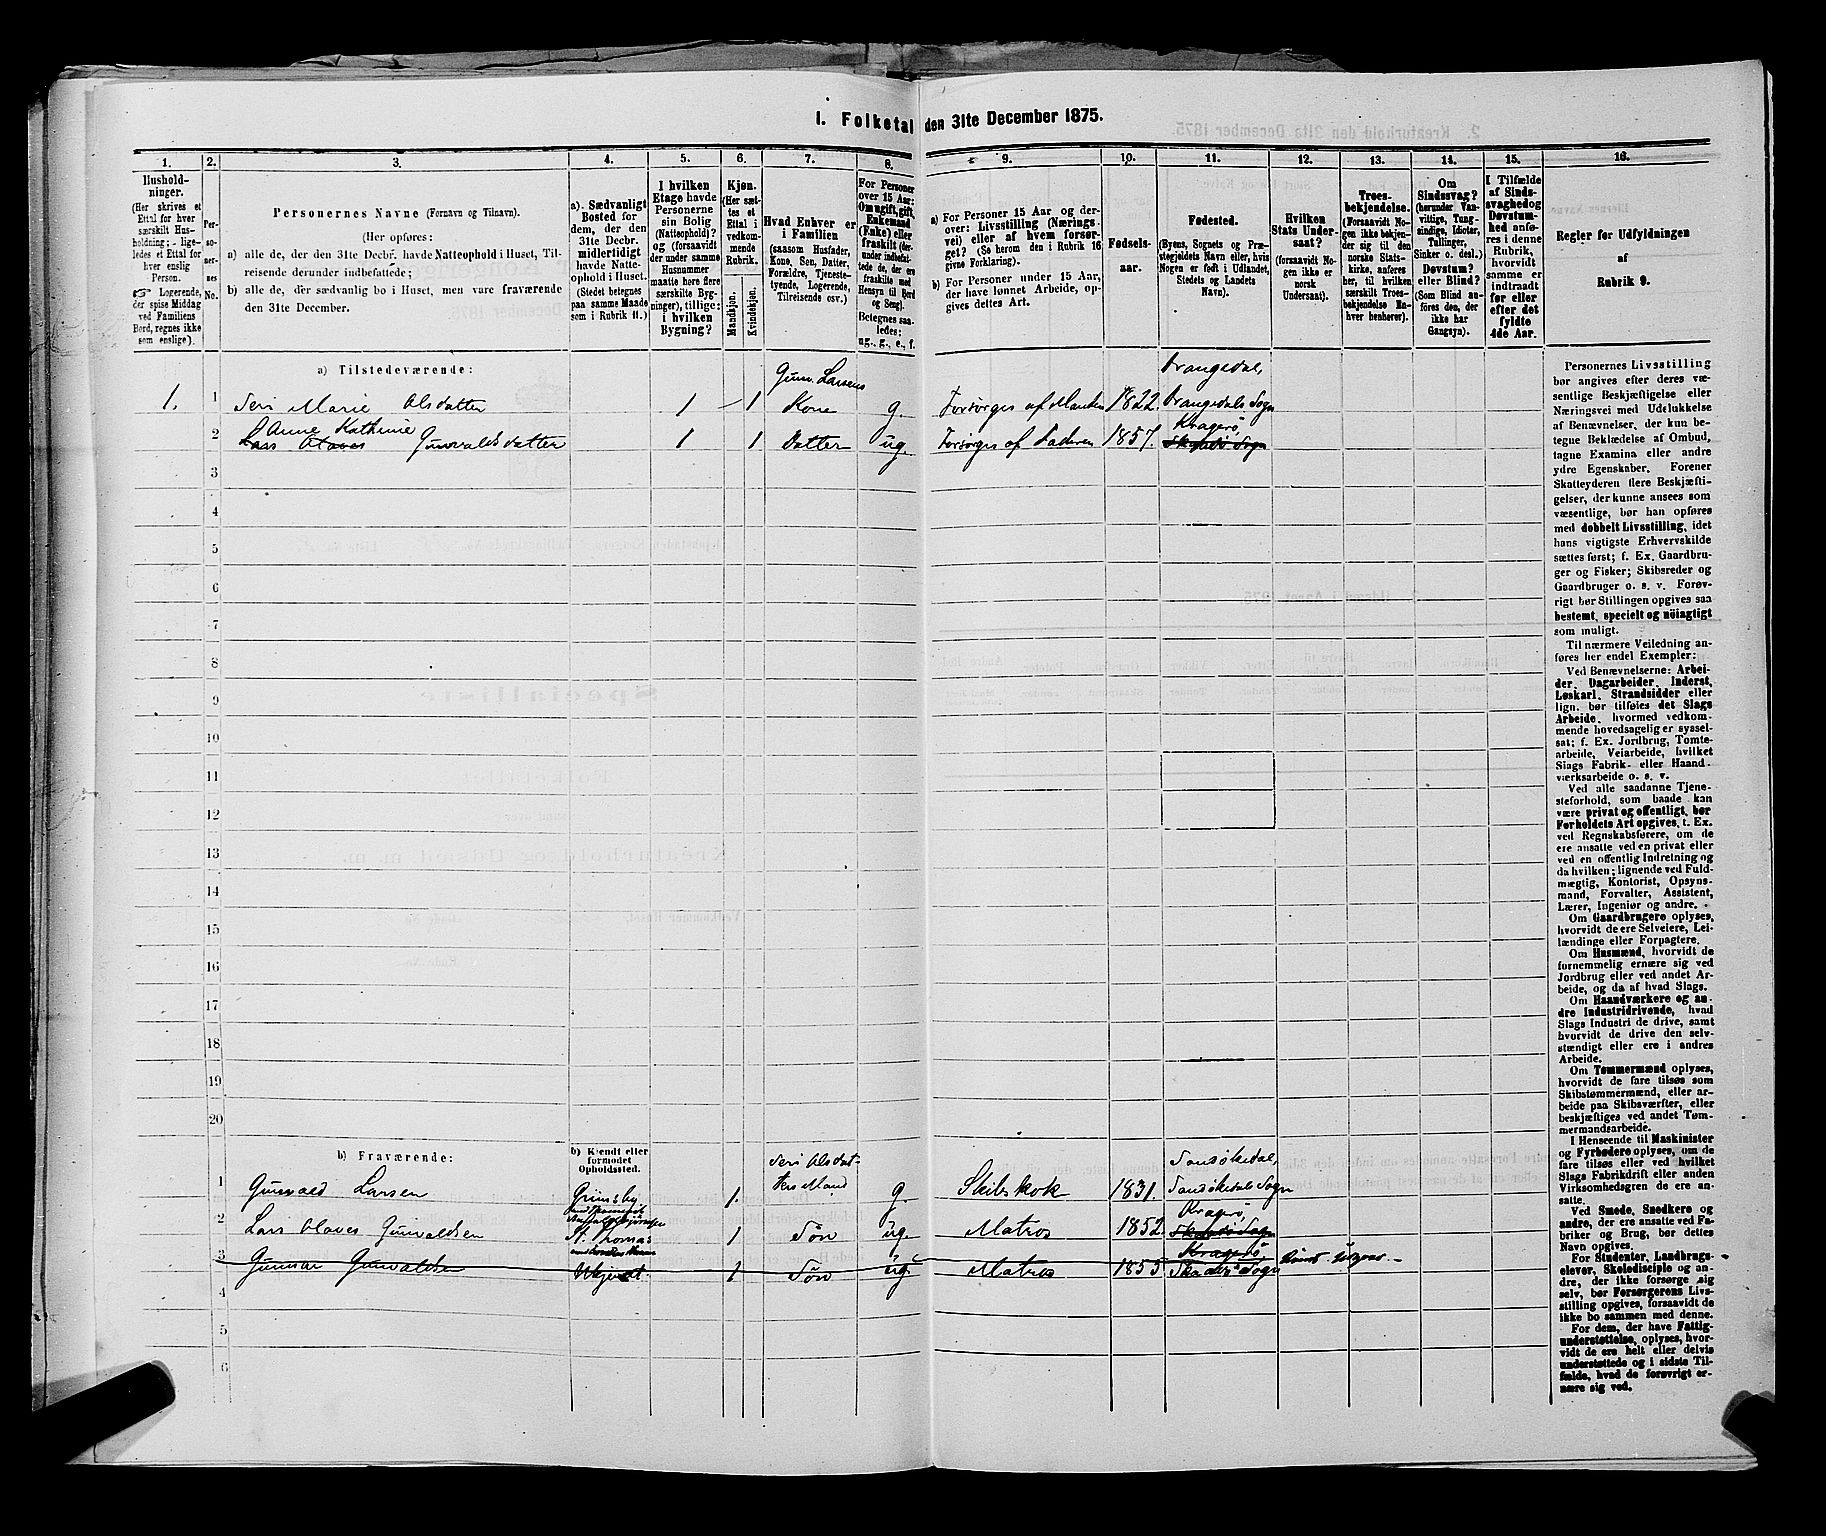 1. Folketal den 31te December 1875.
1. 2. 3. 4. 5. 6. 7. 8. 9. 10. 11. 12. 13. 14. 15. 16.
Hushold-
ninger.
(Her skrives et
Ettal for hver
særskilt Hus-
holdning; lige-
ledes et Ettal for
hver enslig
Person.
☞ Logerende,
der spise Middag
ved Familiens
Bord, regnes ikke
som enslige).
Per-
so-
ner-
nes
No.
Personernes Navne (Fornavn og Tilnavn).
(Her opføres:
a) alle de, der den 31te Decbr. havde Natteophold i Huset, Til-
reisende derunder indbefattede;
b) alle de, der sædvanlig bo i Huset, men vare fraværende
den 31te December.
a). Sædvanligt
Bosted for
dem, der den
31te Decbr.
midlerlidigt
havde Natte-
ophold i Huset.
(Stedet betegnes
paa samme Maade
som i Rubrik 11.)
I hvilken
Etage havde
Personerne
sin Bolig
(Natteophold)?
og (forsaavidt
der under samme
Husnummer
maatte høre flere
særskilte Byg-
ninger), tillige:
i hvilken
Bygning?
Kjøn.
(Her sæt-
tes et
Ettal i
vedkom-
mende
Rubrik.
Mandkjøn.
Kvindekjøn.
Hvad Enhver er
i Familien
(saasom Husfader,
Kone, Søn, Datter,
Forældre, Tjeneste-
tyende, Logerende,
Tilreisende osv.)
For Personer
over 15 Aar:
Om ugift, gift,
Enkemand
(Enke) eller
fraskilt (der-
under indbefat-
tede de, der ere
fraskilte med
Hensyn til Bord
og Seng).
Betegnes saa-
ledes:
ug., g., e., f.
a) For Personer 15 Aar og der-
over: Livsstilling (Nærings-
vei) eller af hvem forsør-
get? (Se herom den i Rubrik 16
givne Forklaring).
b) For Personer under 15 Aar,
der have lønnet Arbeide, op-
gives dettes Art.
Fødsels-
aar.
Fødested.
(Byens, Sognets og Præ-
stegjeldets Navn eller, hvis
Nogen er født i Udlandet,
Stedets og Landets
Navn).
Hvilken
Stats Under-
saat?
(forsaavidt No-
gen ikke er
norsk
Undersaat).
Troes-
bekjendelse.
(Forsaavidt No-
gen ikke bekjen-
der sig til den
norske Stats-
kirke, anføres
her, til hvilken
særskilt Troes-
bekjendelse En-
hver henhører).
Om
Sindssvag?
(herunder Van-
vittige, Tung-
sindige, Idioter,
Tullinger,
Sinker o. desl.)
Døvstum?
eller Blind?
(Som Blind an-
føres den, der
ikke har
Gangsyn).
I Tilfælde
af Sinds-
svaghed og
Døvstum-
hed anfø-
res i denne
Rubrik,
hvorvidt
samme er
indtraadt
før eller
efter det
fyldte
4de Aar.
Regler for Udfyldningen
af
Rubrik 9.
a) Tilstedeværende:
1. 1 Seri Marie Olsdatter 1 1 Gunv. Larsens Kone g. Forsørges af Manden 1822. Drangedal, Drangedals Sogn
2 Anne Kathrine Lars Olaves Gunvaldsdatter 1 1 Datter ug. Forsørges af Faderen 1857. Kragerø, Skaabø Sogn
3
4
5
6
7
8
9
10
11
12
13
14
15
16
17
18
19
20
b) Fraværende:
b) Kjendt eller
formodet
Opholdssted.
1 Gunvald Larsen Grimsby 1. Seri Olsdat-
ters Mand g. Skibskok 1831. Sandøkedal, Sandøkedals Sogn
2 Lars Olaves Gunvaldsen St. Thomas 1 Søn ug. Matros 1852. Kragerø, Skaabø Sogn
3 Gunnar Gunvaldsen Ukjendt. 1 Søn ug. Matros 1855 Kragerø Skaabø Sogn
4
5
6
Personernes Livsstilling
bør angives efter deres væ-
sentlige Beskjæftigelse eller
Næringsvei med Udelukkelse
af Benævnelser, der kun be-
tegne Beklædelse af Ombud,
tagne Examina eller andre
ydre Egenskaber. Forener
Skatteyderen flere Beskjæfti-
gelser, der kunne ansees som
væsentlige, bør han opføres
med dobbelt Livsstilling, idet
hans vigtigste Erhvervskilde
sættes først; f. Ex. Gaardbru-
ger og Fisker; Skibsreder og
Gaardbruger o. s. v. Forøv-
rigt bør Stillingen opgives saa
bestemt, specielt og nöiagtigt
som muligt.
Til nærmere Veiledning an-
føres her endel Exempler:
Ved Benævnelserne: Arbei-
der, Dagarbeider, Inderst,
Løskarl, Strandsidder eller
lign. bør tilføies det Slags
Arbeide, hvormed vedkom-
mende hovedsagelig er syssel-
sat; f. Ex. Jordbrug, Tomte-
arbeide, Veiarbeide, hvilket
Slags Fabrik- eller Haand-
værksarbeide o. s. v.
Ved alle saadanne Tjene-
steforhold, som baade kan
være privat og offentligt, bør
Forholdets Art opgives, t. Ex.
ved Regnskabsførere, om de
ere ansatte ved en privat eller
ved en offentlig Indretning og
da hvilken; lignende ved Fuld-
mægtig, Kontorist, Opsyns-
mand, Forvalter, Assistent,
Lærer, Ingeniør og andre.
Om Gaardbrugere oplyses,
hvorvidt de ere Selveiere, Lei-
lændinge eller Forpagtere.
Om Husmænd, hvorvidt de
fornemmelig ernære sig ved
Jordbrug eller ved andet Ar-
beide, og da af hvad Slags.
Om Haandværkere og an-
dre Industridrivende, hvad
Slags Industri de drive, samt
hvorvidt de drive den selv-
stændigt eller ere i andres
Arbeide.
Om Tømmermænd oplyses,
hvorvidt de fare tilsøs som
Skibstømmermænd, eller ar-
beide paa Skibsværfter, eller
beskjæftiges ved andet Tøm-
mermandsarbeide.
I Henseende til Maskinister
og Fyrbødere oplyses, om de
fare tilsøs eller ved hvilket
Slags Fabrikdrift eller anden
Virksomhedsgren de ere an-
satte.
Ved Smede, Snedkere og
andre, der ere ansatte ved Fa-
briker og Brug, bør dettes
Navn opgives.
For Studenter, Landbrugs-
elever, Skoledisciple og an-
dre, der ikke forsørge sig
selv, bør Forsørgerens Livs-
stilling opgives, forsaavidt de
ikke bo sammen med denne.
For dem, der have Fattig-
understøttelse, oplyses, hvor-
vidt de ere helt eller delvis
understøttede og i sidste Til-
fælde, hvad de forøvrigt er-
nære sig ved.